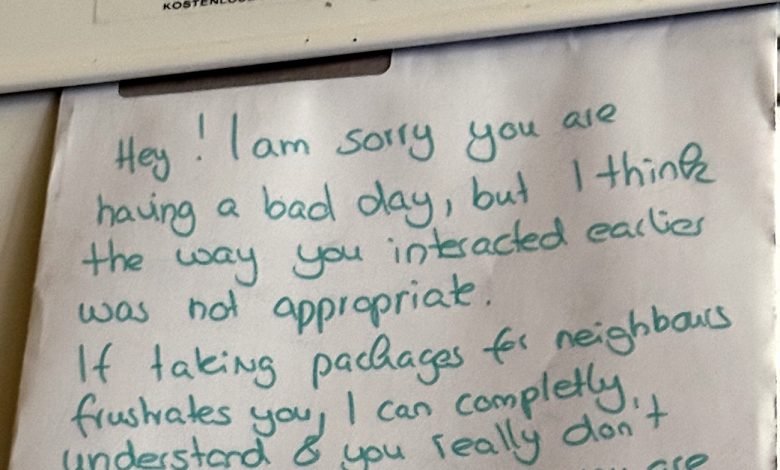 Hey! I am sorry you are
having a bad day, but I think
the way you interacted earlier
was not appropriate.
If taking packages for neighbours
frustrates you, I can completly
understand & you really don't
are